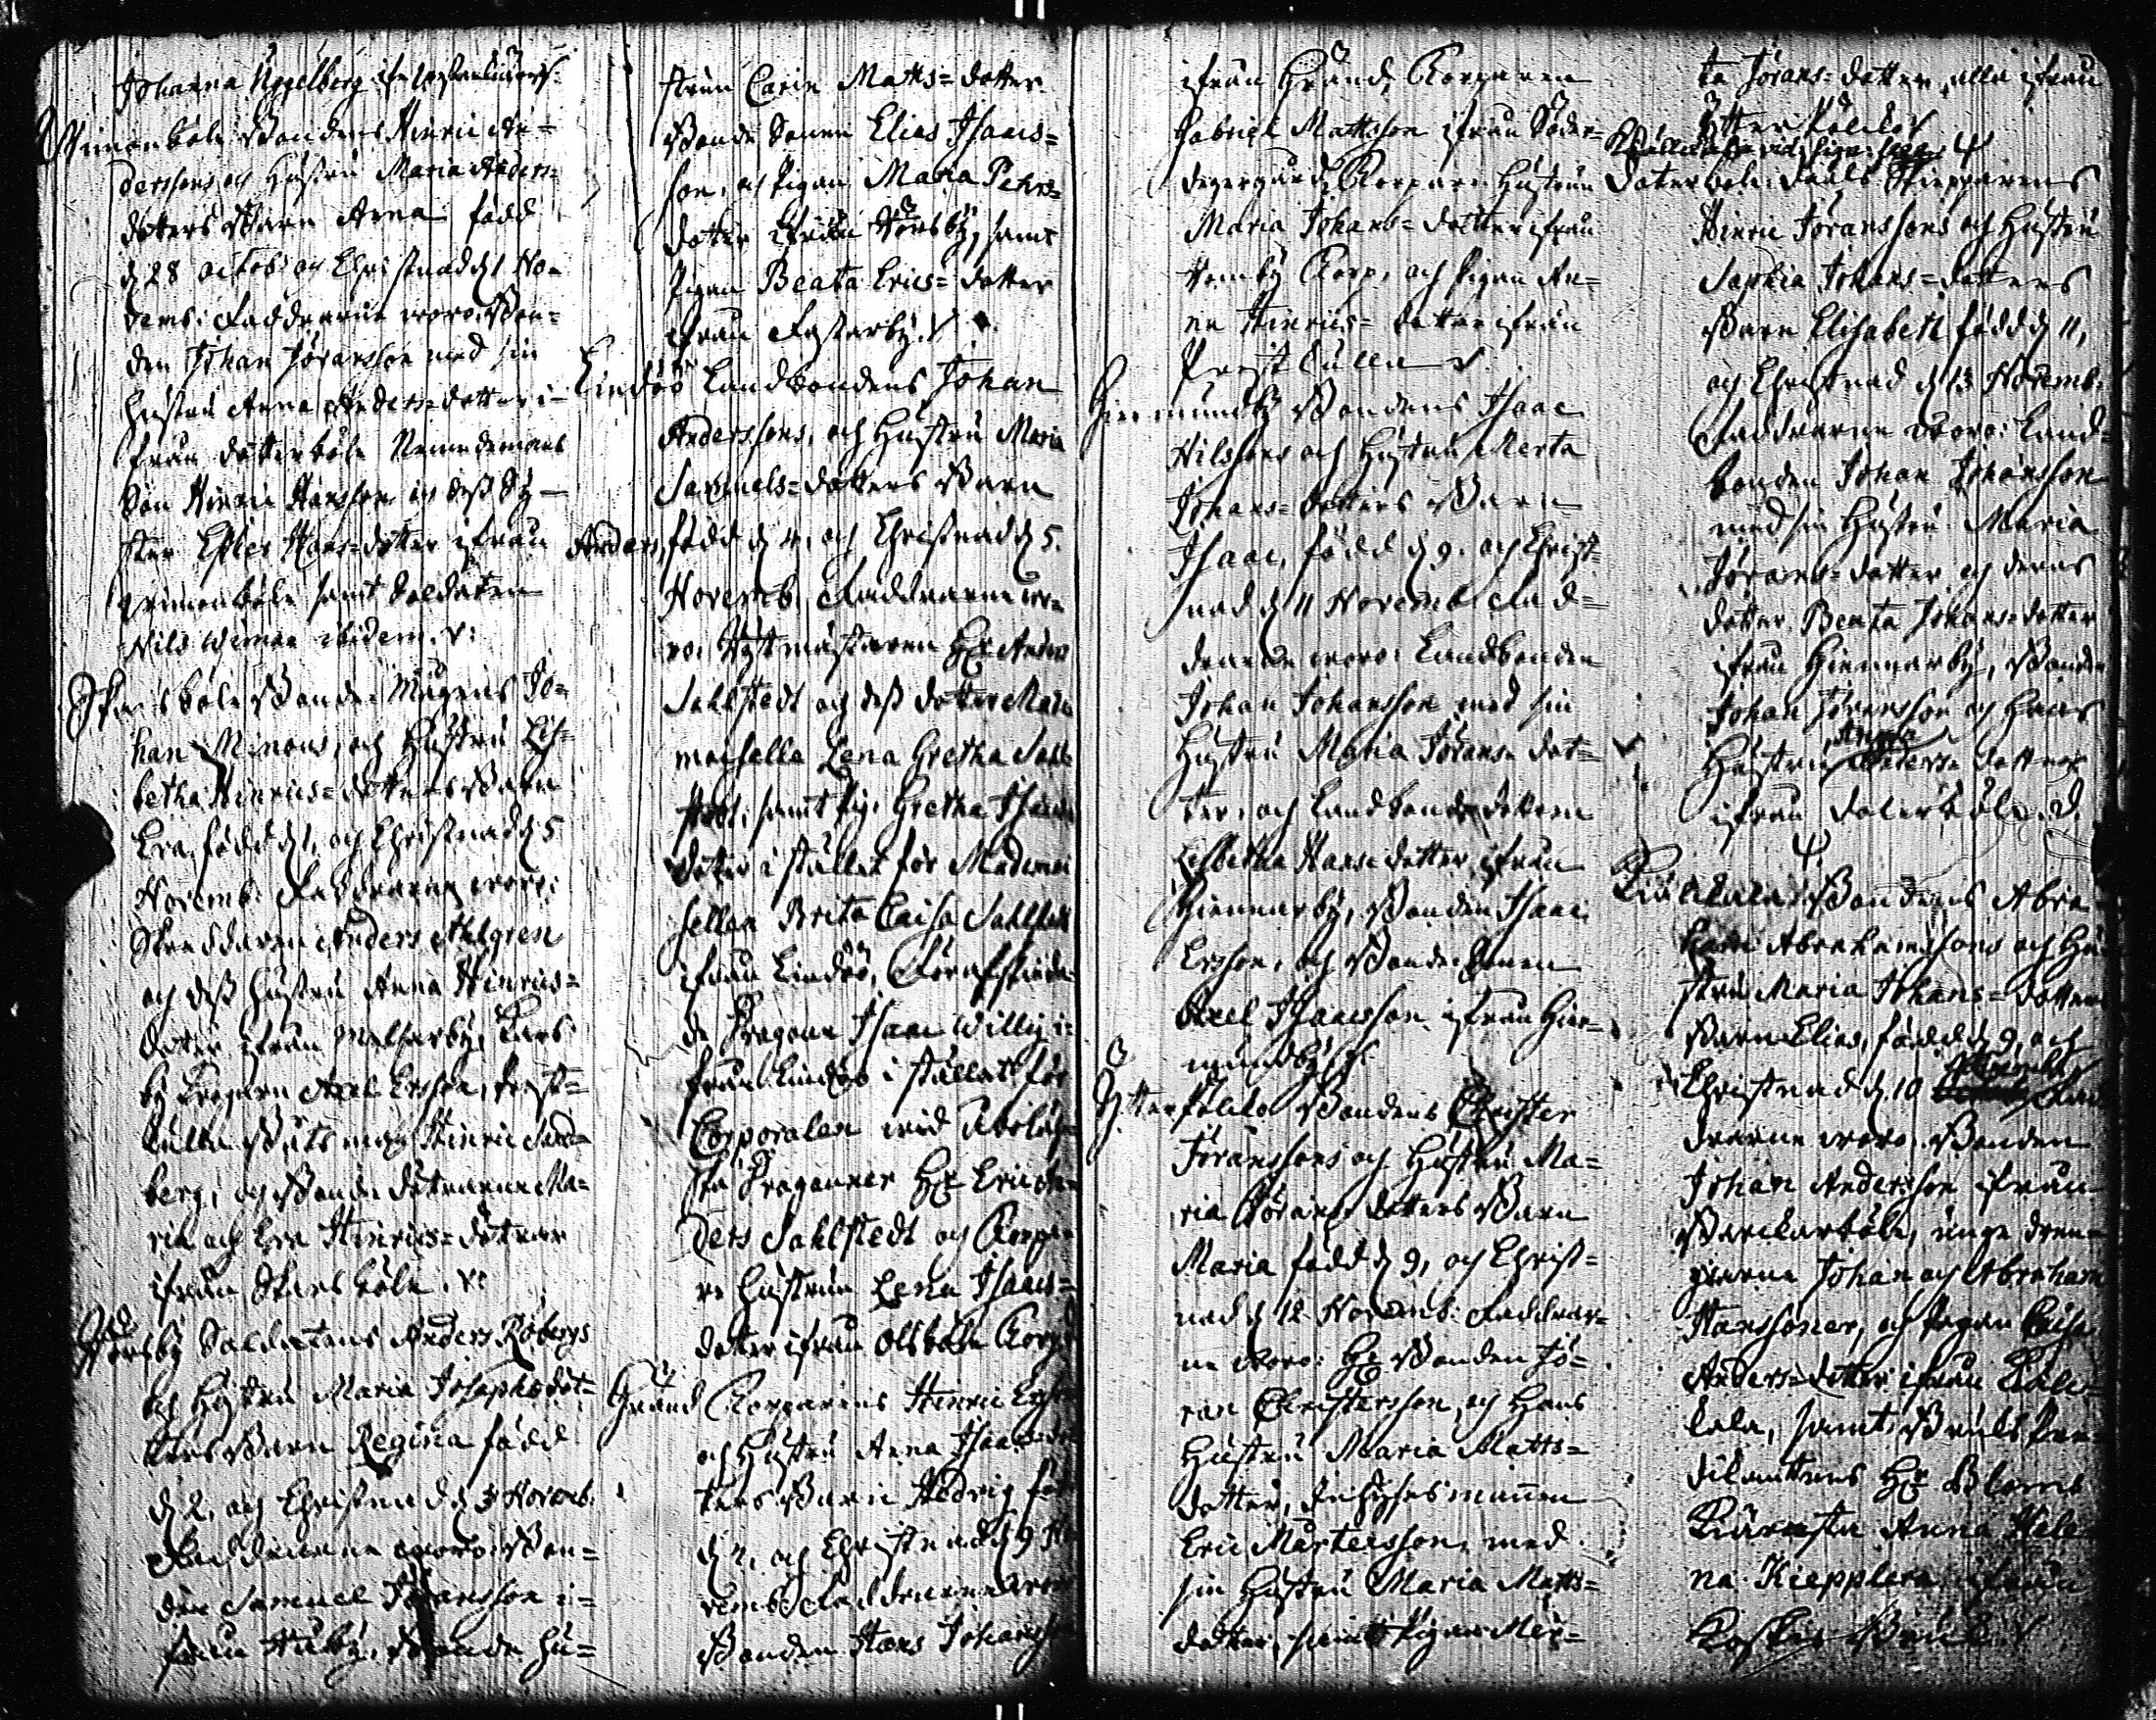 Johanna Nygelberg ifr.
Grimonböle Bondens Hinric An=
derssons och Hustru Maria Anders=
dotters Barn Anna född
d 28 octob: och Christnad d 1 No=
vemb: Faddrarne woro: Bon=
den Johan Jöransson med sin
Hustru Anna Anders=dotter i=
från Dötterböle Nämndemans
Son Hinric Hansson och dess Sy=
ster Ester Hans=dotter ifrån
Grimonböle samt Soldaten
Nils Wiman ibidem. v:
Skarsböle Bonde=Mågens Jo=
han Minons, och Hustru Lis=
betha Hinrics=dotters Barn
Eva, född d 1, och Christnad d 5
Novemb: Faddrarne woro:
Skreddaren Anders Ahlgren
och dess hustru Anna Hinrics=
dotter ifrån Malsarby, Kars
by Krogaren Axel Ersson, Prest=
kulla Båtsman Hinric Sand=
berg, och Bonde döttrarne Ma=
ria och Eva Hinrics=döttrar
ifrån Skarsböle. v:
Horsby Soldatens Anders Röbergs
och Hustru Maria Josephs dot=
ters Barn Regina född
d 2, och Christnad d 3 Novemb.
Faddrarne woro: Bon=
den Samuel Johansson i=
från Åkby, Bonde Hu=
strun Carin Matts=dotter
Bonde Sonen Elias Isaacs=
son, och Pigan Maria Pehrs=
dotter ifrån Horsby, samt
Pigan Beata Erics=dotter
ifrån Fasterby. v
Lindöö Landbondens Johan
Anderssons, och Hustru Maria
Samuels=dotters Barn
Anders, född d 4, och Christnad d 5.
Novemb. Faddrarne wo=
ro. Rystmästaren Hr Anders
Sahlstedt och dess dotter Made
moiselle Lena Gretha Sahl
stedt, samt Pig. Gretha Isaacs
dotter i stället för Mademoi
sellen Brita Caisa Sahlstedt
ifrån Lindöö, Förafskieda
de Dragoun Isaac Willig i=
från Lindöö i stället för
Corporalen wid Åbolähns
Dragoner Hr Eric An=
ders Sahlstedt och Torpa=
re hustrun Lena Isaacs=
dotter ifrån Olsböle Torp.
Grånd Torparens Hinric Erss
och Hustru Anna Isaacs=do
ters Barn Hedvig född
d 2, och Christnad d 9 No
vemb. Faddrarne woro
Bonden Hans Johansson
ifrån Grånd, Torparen
Gabriel Mattsson ifrån Söder=
degergård, Torpare Hustrun
Maria Johans=dotter ifrån
Hemby Torp, och Pigan An=
na Hinrics=dotter ifrån
Prestkulla v.
Giermundby Bondens Isaac
Nilssons och Hustru Merta
Johans=dotters Barn
Isaac, född d 9. och Christ=
nad d 11 Novemb. Fad=
drarne woro: Landbonden
Johan Johansson med sin
Hustru Maria Jörans=dot=
ter, och Landbonde dottren
Lisbetha Hans=dotter, ifrån
Giennarby, Bonden Isaac
Ersson, och Bonde Sonen
Axel Isaacsson ifrån Gier=
mundby. v
Ytterfölcko Bondens Christer
Jöranssons och Hustru Ma=
ria Jörans dotters Barn
Maria född d 9, och Christ=
nad d 12 Novemb. Faddrar=
ne woro: Hr Bonden Jö=
ran Christersson, och Hans
Hustru Maria Matts=
dotter, Inhysesmannen
Eric Mårtensson, med
sin Hustru Maria Matts=
dotter, samt Pigan Mer=
ta Jörans=dotter, alla ifrån
Ytterfölcko v
Doterböle Skiepparens
Hinric Jöranssons och Hustru
Sophia Johans=dotters
Barn Elisabeth född d 11,
och Christnad d 13 Novemb.
Faddrarne woro: Land=
bonden Johan Johansson
med sin Hustru Maria
Jörans=dotter, och deras
dotter Beata Johans=dotter
ifrån Giennarby, Bonden
Johan Jöransson och hans
Hustru Anna Anders=dotter
ifrån Doterböle. v.
Kiälckala Bondens Abra=
ham Abrahamssons och Hu=
stru Maria Johans=dotters
Barn Elias, född d 9, och
Christnad d. 10 Novemb. Fad=
drarne woro. Bonden
Johan Andersson ifrån
Barckarböle, unge dren=
garne Johan och Abraham
Hanssöner, och Pigan Caisa
Anders=dotter ifrån Kiälc=
kala, samt Bruks Pre=
dikantens Hr Blom
Kiäresta Anna Hele=
na Kiepplera ifrån
Koskis Bruk. v